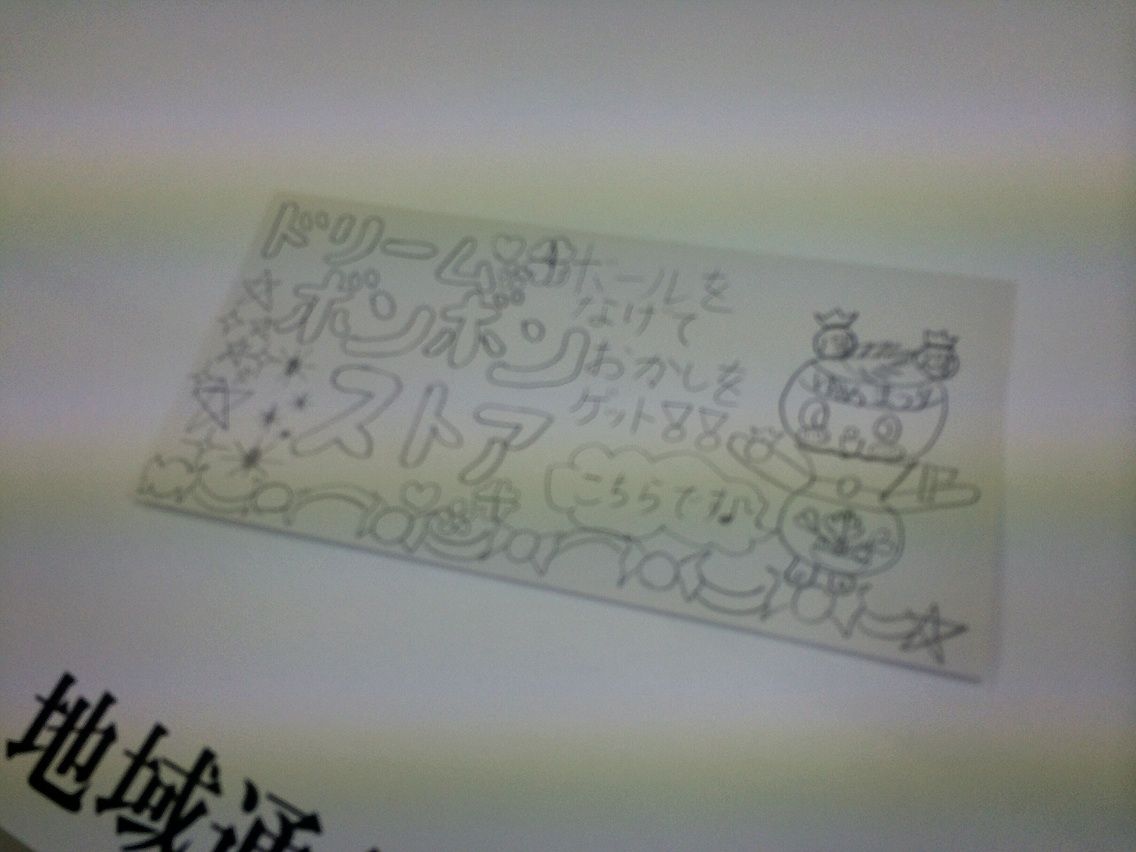 ドリーム
ボンボン
ストア
ボールを
なげて
おかしを
ゲット!!
こちらです♪
地域通